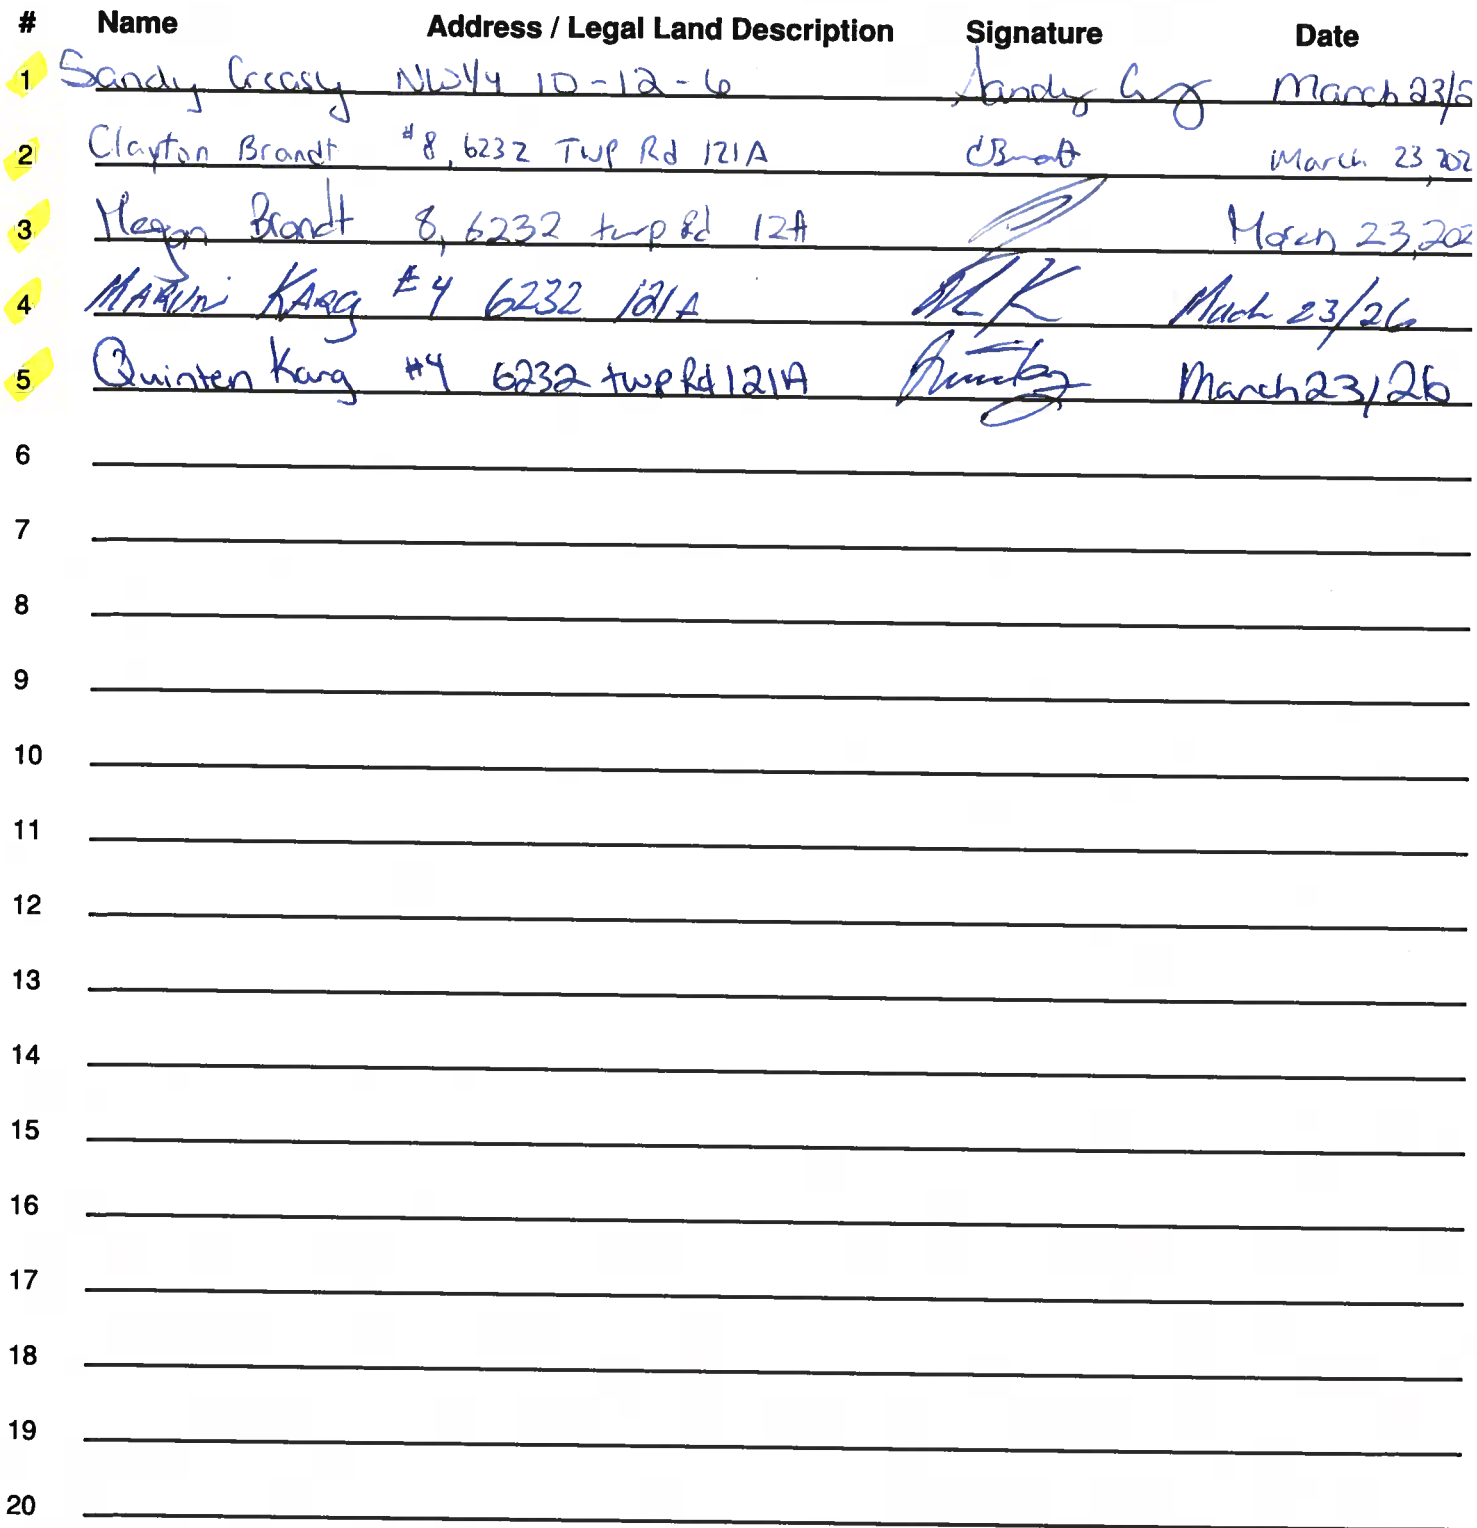 # Name Address / Legal Land Description Signature Date
1 Sandy Creasy NW1/4 10-12-6 Sandy March 23/2
2 Clayton Brandt #8, 6232 TWP Rd 121A CBrandt March 23, 202
3 Megan Brandt 8, 6232 twp Rd 12A March 23, 202
4 Marvin Karg #4 6232 121A MK March 23/26
5 Quinten Karg #4 6232 twp Rd 121A March 23/26
6
7
8
9
10
11
12
13
14
15
16
17
18
19
20